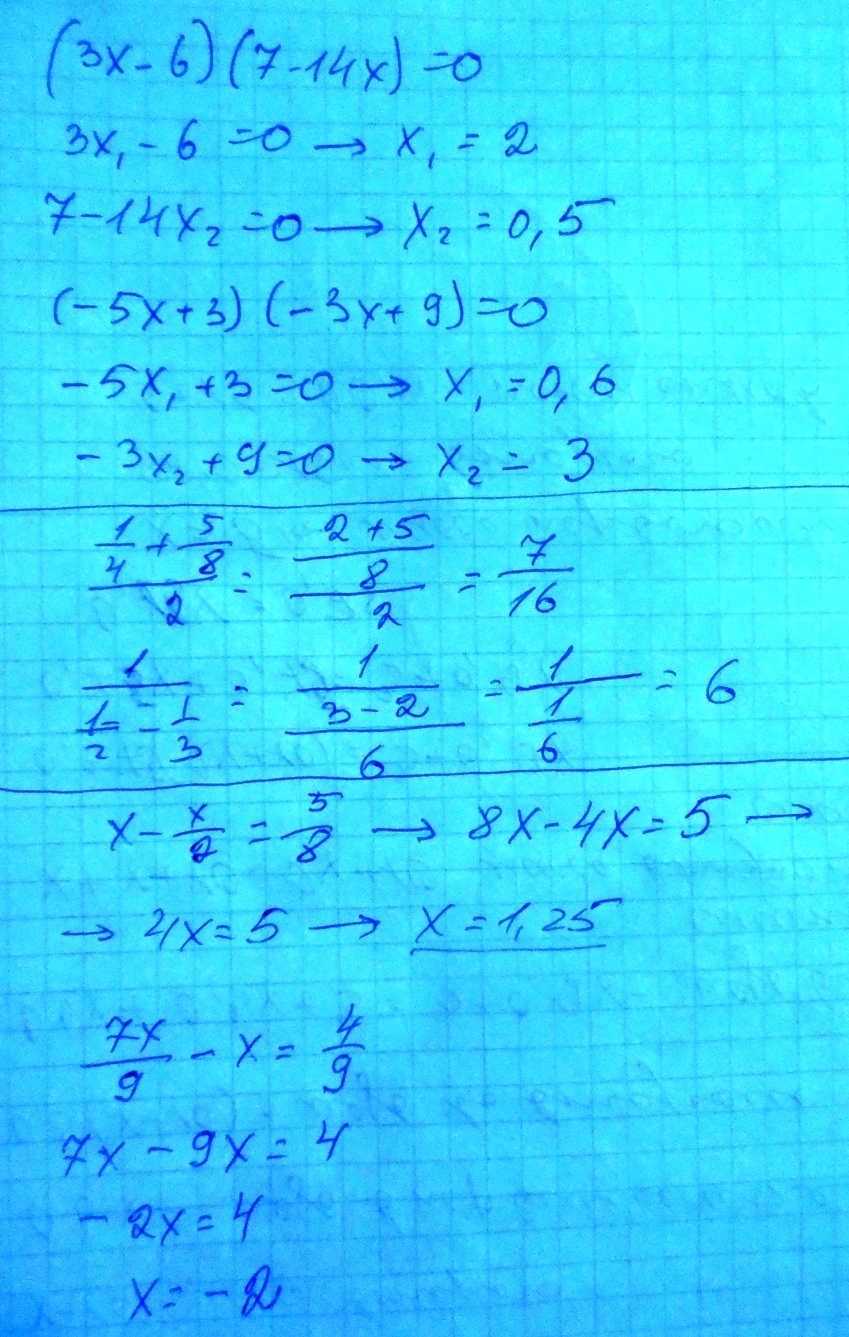 (3x-6)(7-14x)=0
3x₁-6=0 → x₁=2
7-14x₂=0 → x₂=0,5
(-5x+3)(-3x+9)=0
-5x₁+3=0 → x₁=0,6
-3x₂+9=0 → x₂=3
(1/4+5/8)/2 = ((2+5)/8)/2 = 7/16
1/(1/2-1/3) = 1/((3-2)/6) = 1/(1/6) = 6
x-x/2=5/8 → 8x-4x=5 →
→ 4x=5 → x=1,25
7x/9-x=4/9
7x-9x=4
-2x=4
x=-2